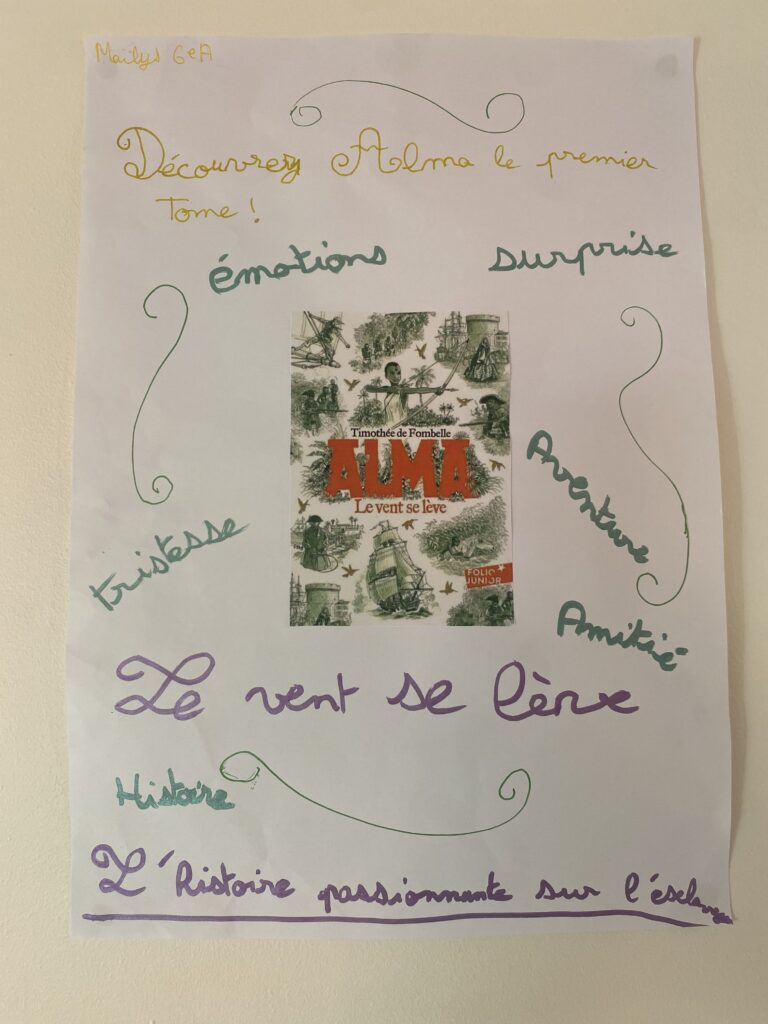 Maïlys 6eA
Découvrez Alma le premier
Tome !
émotions
surprise
Timothée de Fombelle
ALMA
Le vent se lève
FOLIO
JUNIOR
Aventure
tristesse
Amitié
Le vent se lève
Histoire
L'histoire passionnante sur l'esclavage